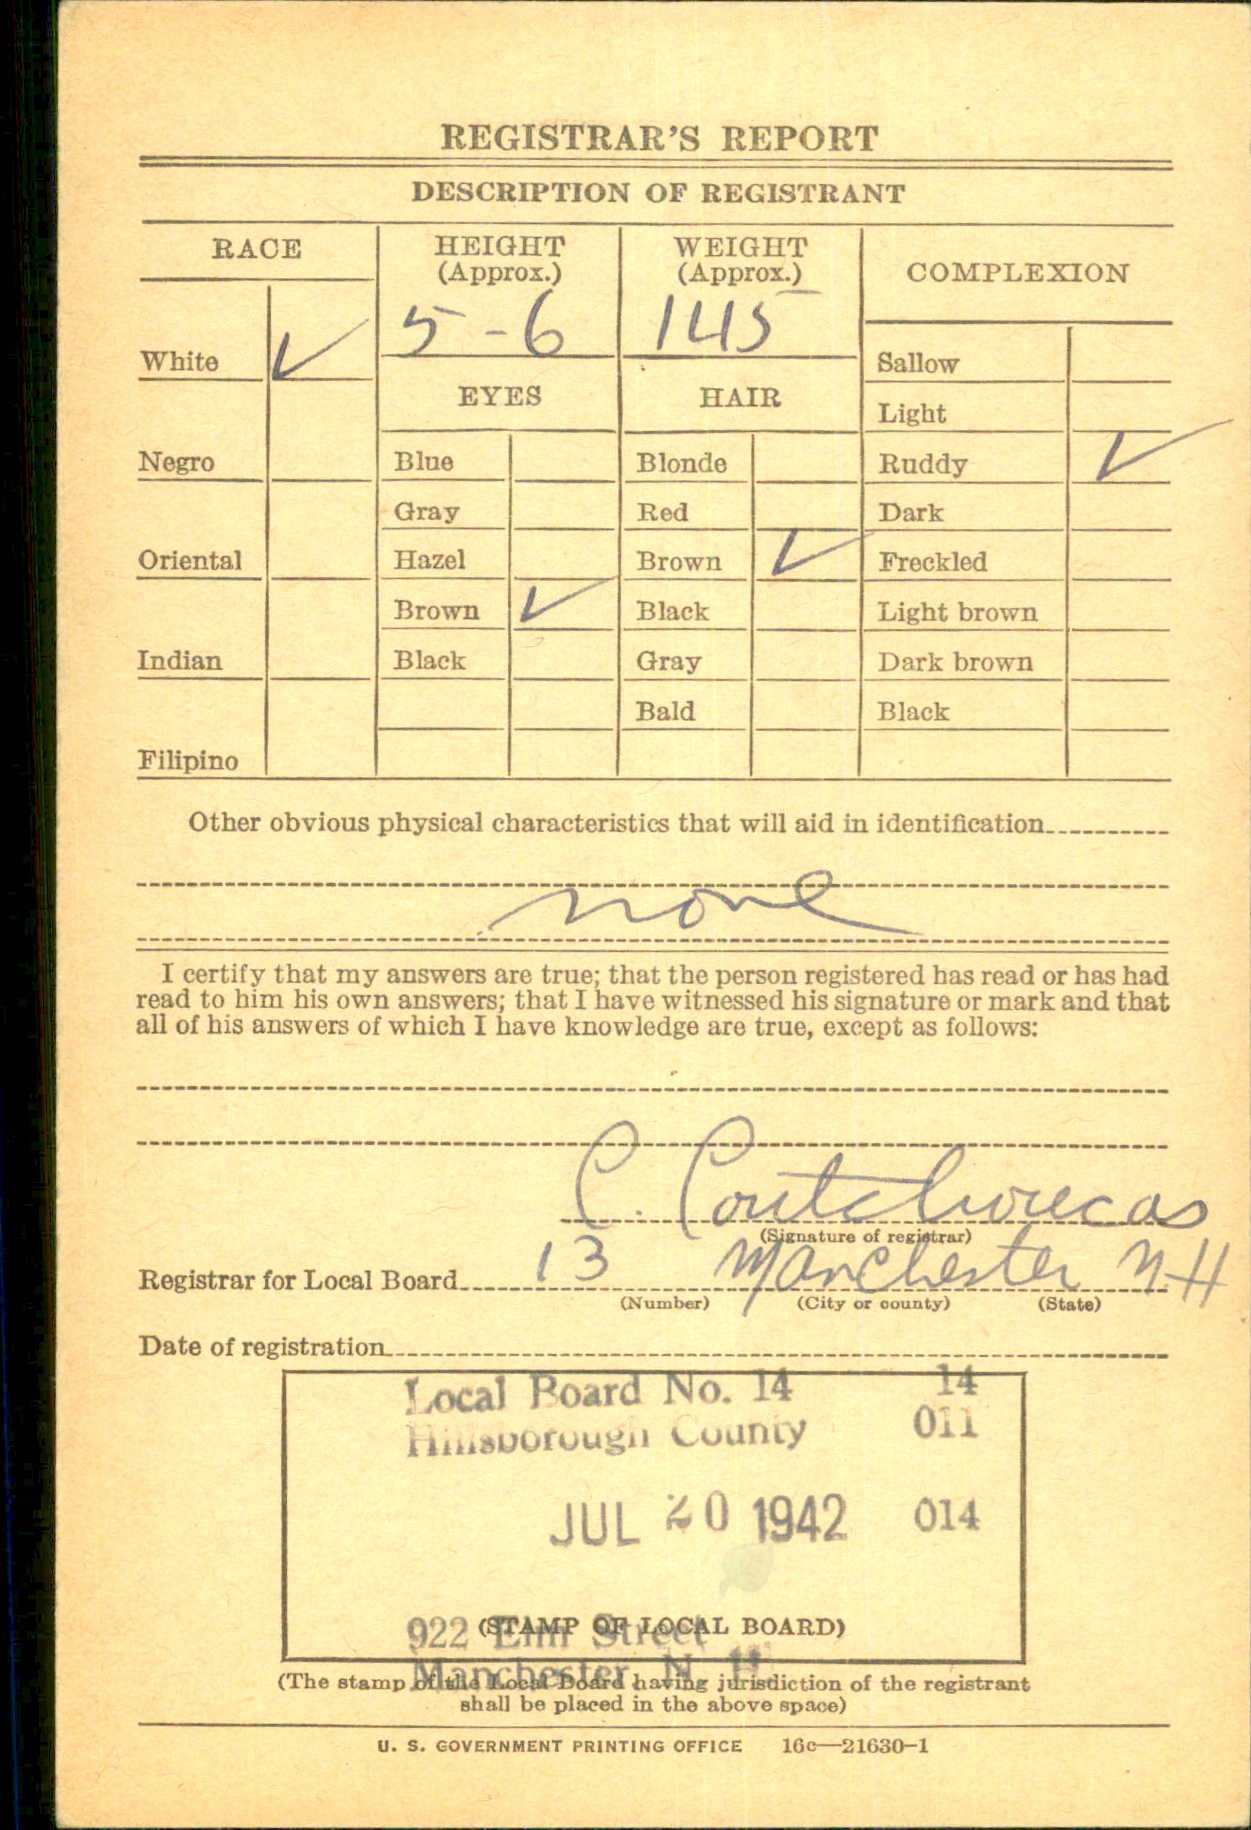 REGISTRAR'S REPORT
DESCRIPTION OF REGISTRANT
RACE
HEIGHT
(Approx.)
WEIGHT
(Approx.)
COMPLEXION
5-6
145
White ✓
Sallow
EYES
HAIR
Light
Negro
Blue
Blonde
Ruddy ✓
Gray
Red
Dark
Oriental
Hazel
Brown ✓
Freckled
Brown ✓
Black
Light brown
Indian
Black
Gray
Dark brown
Bald
Black
Filipino
Other obvious physical characteristics that will aid in identification
none
I certify that my answers are true; that the person registered has read or has had
read to him his own answers; that I have witnessed his signature or mark and that
all of his answers of which I have knowledge are true, except as follows:
C.
(Signature of registrar)
Registrar for Local Board 13 Manchester N.H
(Number) (City or county) (State)
Date of registration
Local Board No. 14 14
Hillsborough County 011
JUL 20 1942 014
922 Elm Street
(STAMP OF LOCAL BOARD)
Manchester, N. H.
(The stamp of the Local Board having jurisdiction of the registrant
shall be placed in the above space)
U. S. GOVERNMENT PRINTING OFFICE 16c—21630-1